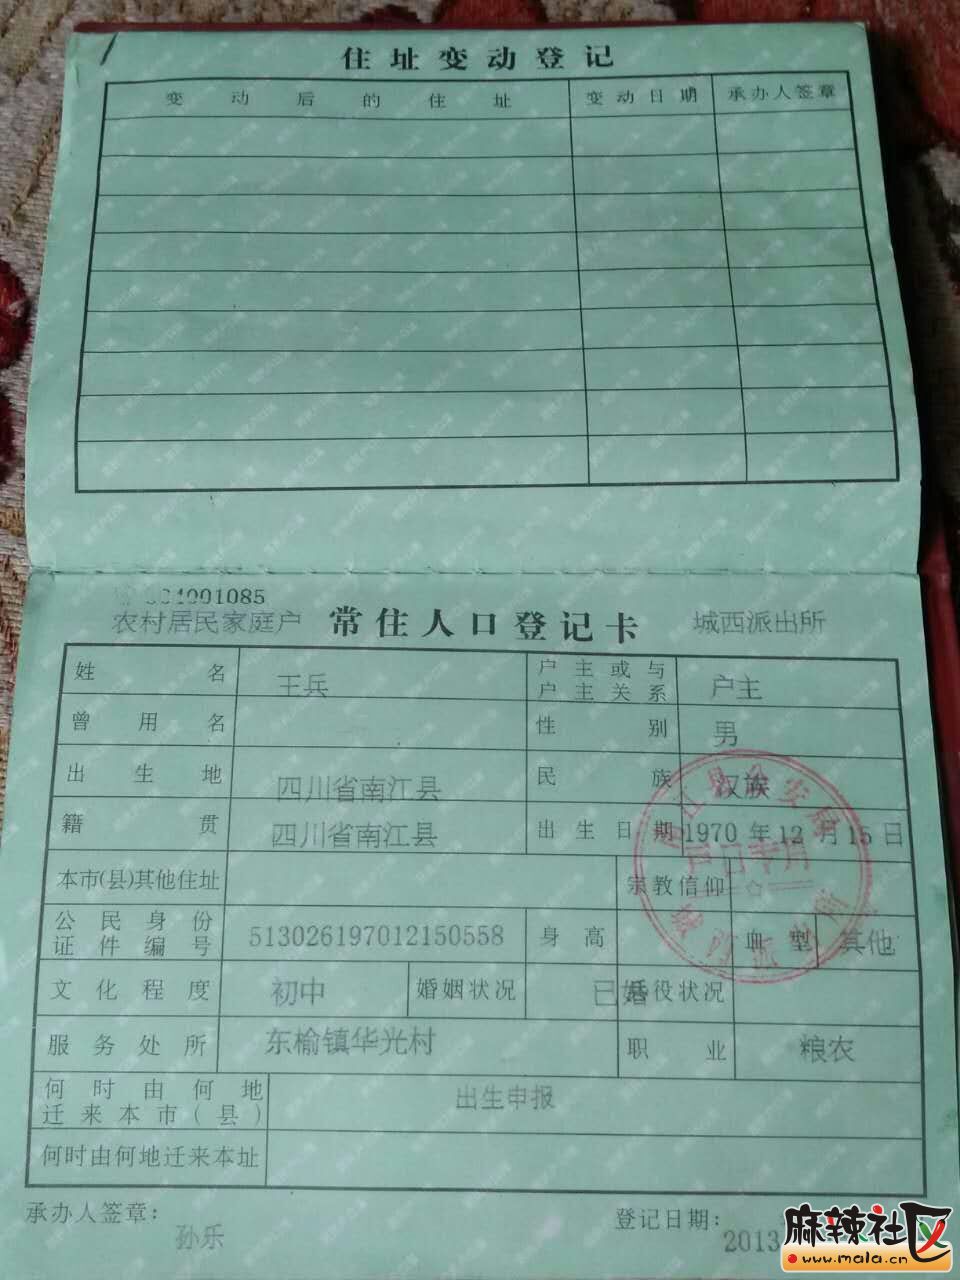 住址变动登记
变动后的住址 变动日期 承办人签章
004001085
农村居民家庭户 常住人口登记卡 城西派出所
姓名 王兵 户主或与户主关系 户主
曾用名 性别 男
出生地 四川省南江县 民族 汉族
籍贯 四川省南江县 出生日期 1970年12月15日
本市(县)其他住址 宗教信仰
公民身份证件编号 513026197012150558 身高 血型 其他
文化程度 初中 婚姻状况 已婚 兵役状况
服务处所 东榆镇华光村 职业 粮农
何时由何地迁来本市(县) 出生申报
何时由何地迁来本址
承办人签章: 孙乐 登记日期: 2013
麻辣社区
www.mala.cn